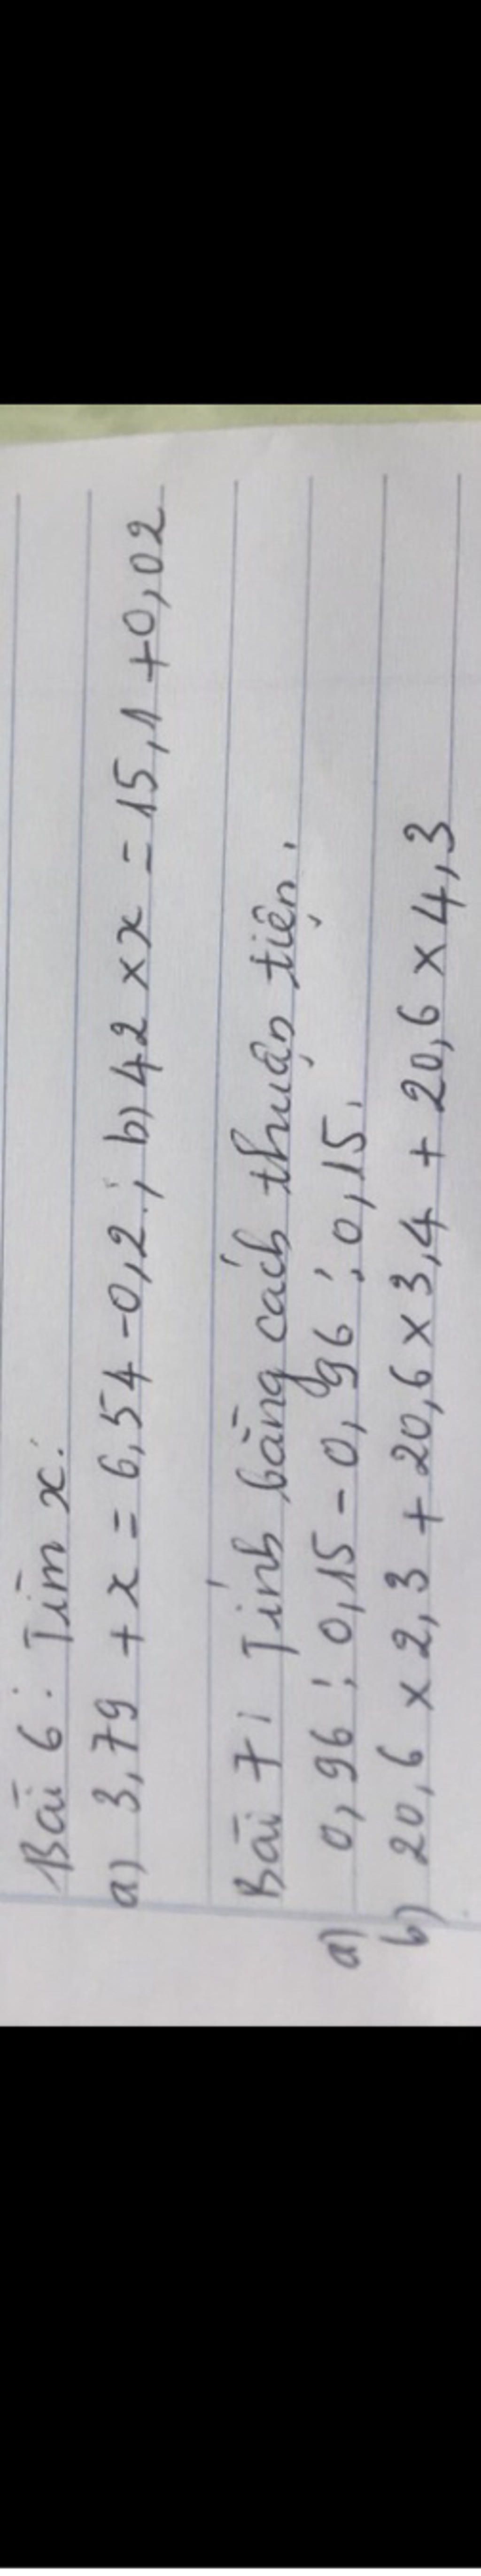 Bài 6: Tìm x.
a) 3,79 + x = 6,54 - 0,2 ; b) 42 × x = 15,1 + 0,02
Bài 7: Tính bằng cách thuận tiện.
a) 0,96 : 0,15 - 0,96 : 0,15.
b) 20,6 × 2,3 + 20,6 × 3,4 + 20,6 × 4,3